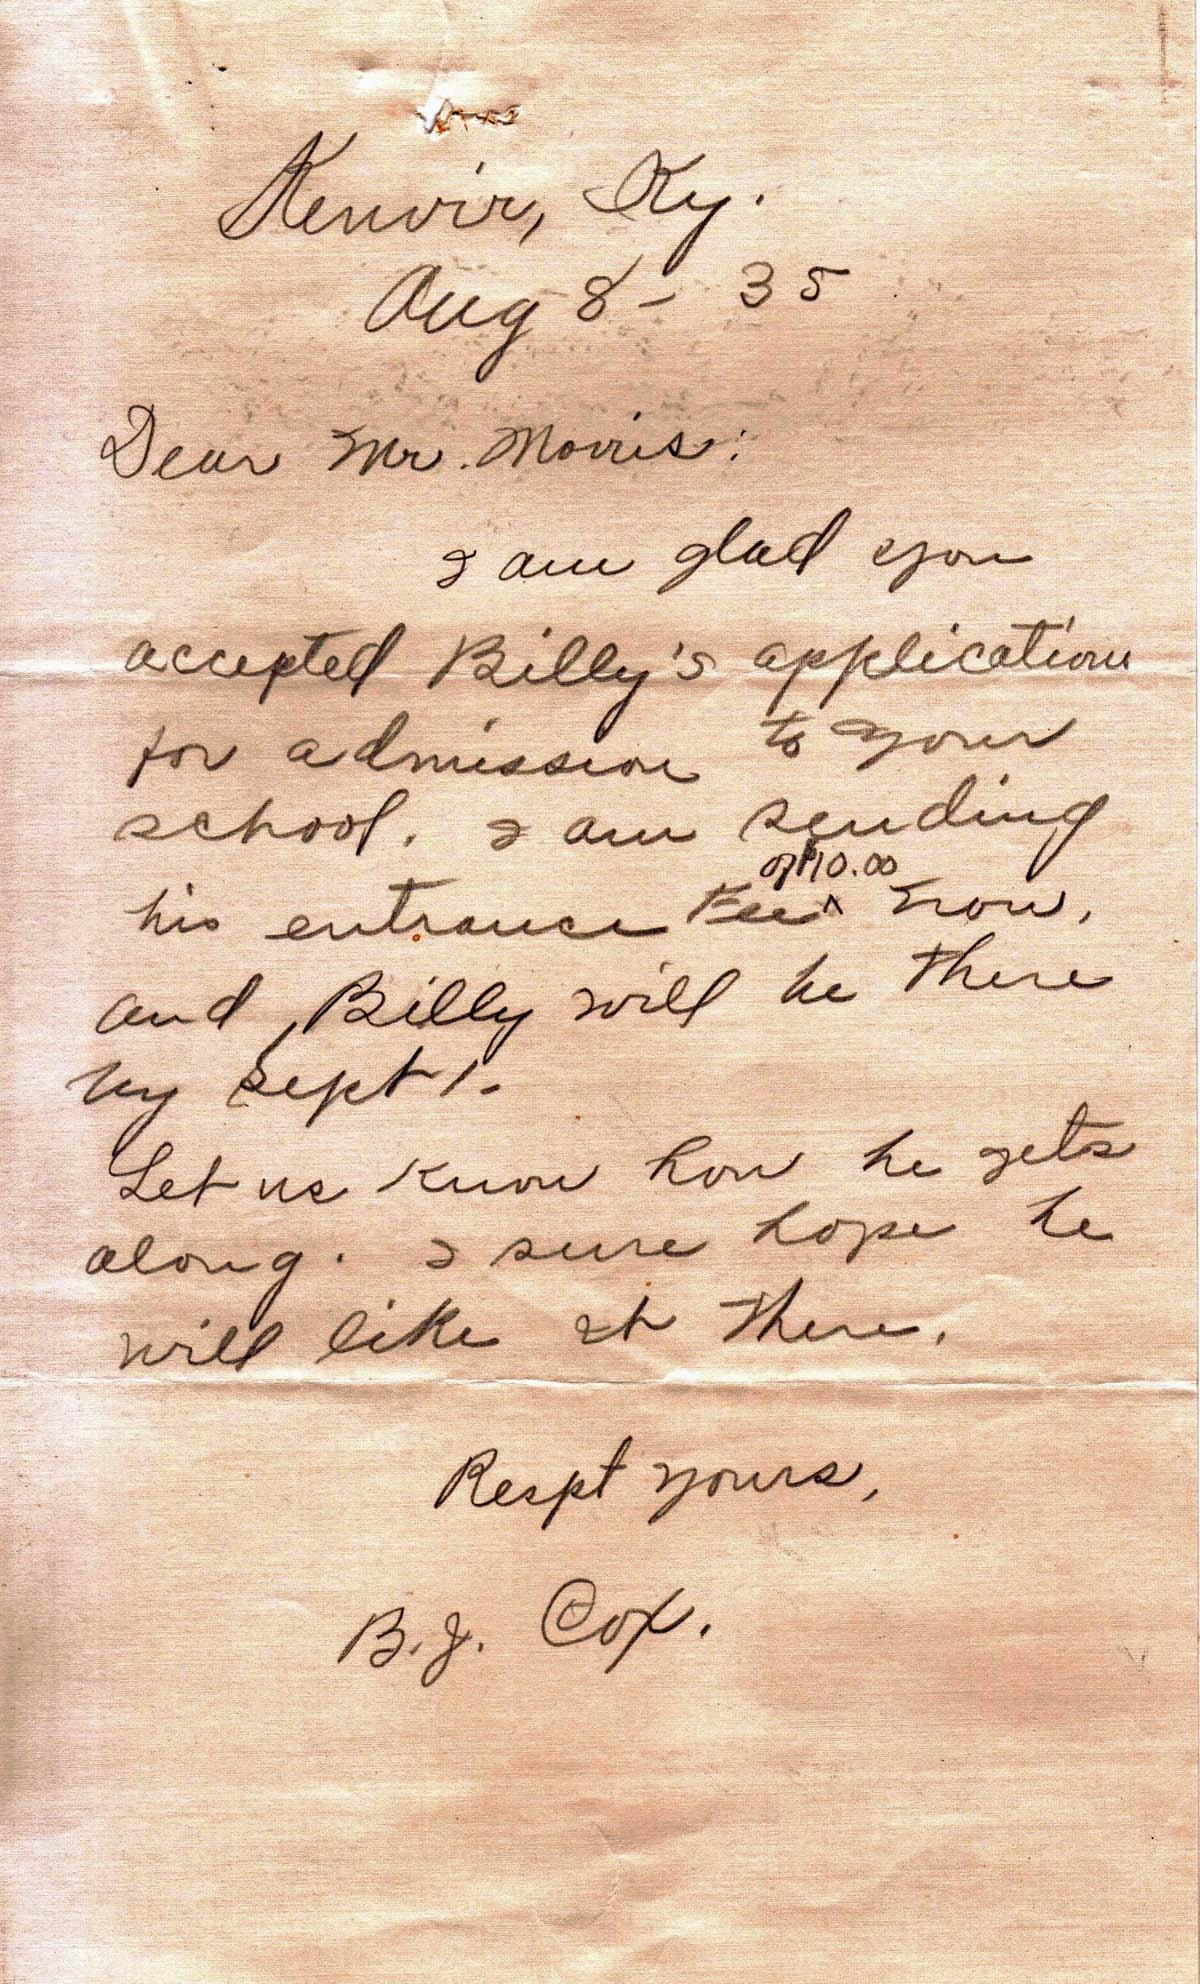 Kenvir, Ky.
Aug 8 - 35
Dear Mr. Morris:
I am glad you
accepted Billy's application
for admission to your
school. I am sending
of $10.00
his entrance Fee ^ now,
and Billy will be there
by Sept 1.
Let us know how he gets
along. I sure hope he
will like it there.
Respt yours,
B.J. Cox.